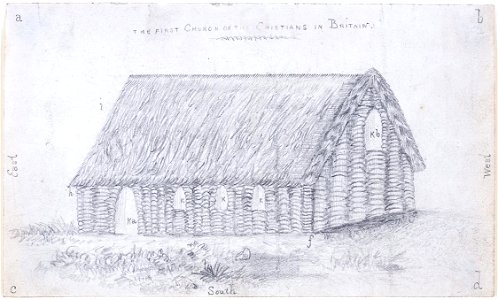 a
b
THE FIRST CHURCH OF THE CRISTIANS IN BRITAIN.
i
K b
East
West
h
K
K
K
K a
f
g
South
c
d